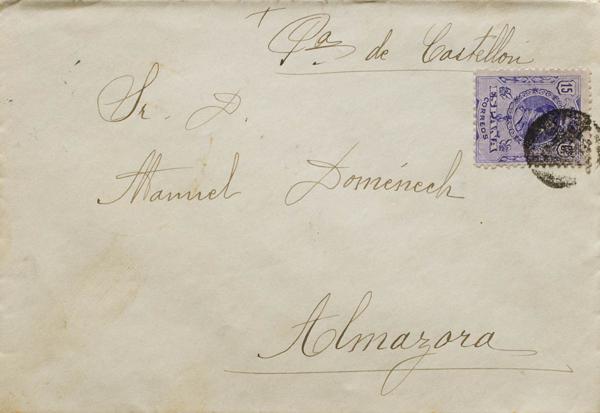 Pa de Castellón
Sr. D.
Manuel Doménech
Almazora
15
ESPAÑA
CORREOS